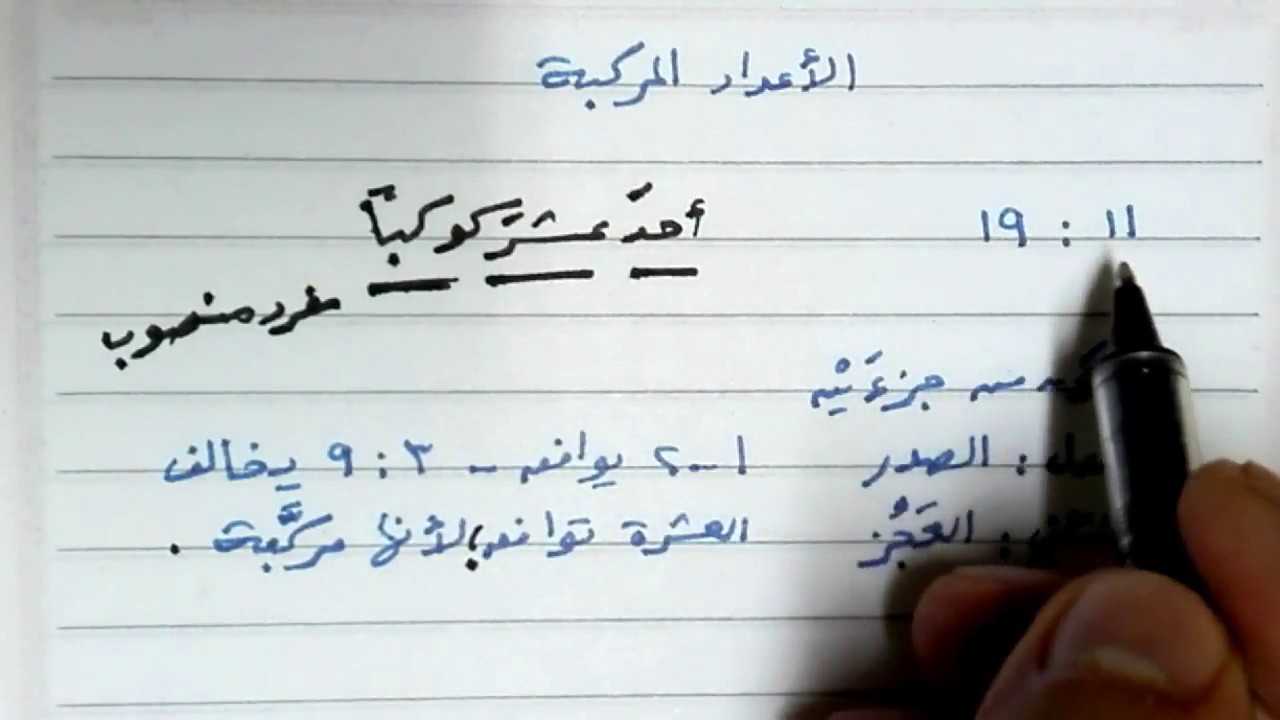 الأعداد المركبة
١١ : ١٩
أحدَ عشرَ كوكبًا
مفرد منصوب
من جزءَيْن
: الصدر
١ - ٢ يوافق - ٣ : ٩ يخالف
: العَجُز
العشرة توافق، لأنها مركَّبة .